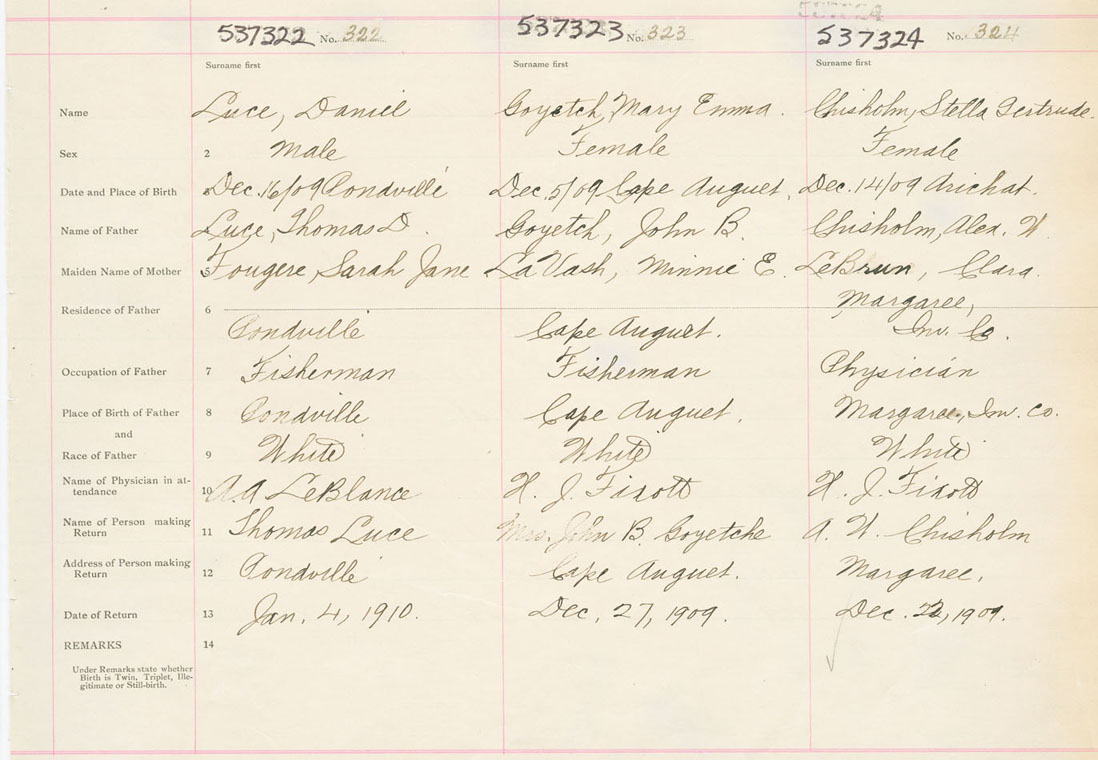 537322 No. 322 537323 No. 323 537324 No. 324
Surname first Surname first Surname first
Name Luce, Daniel Goyetch, Mary Emma. Chisholm, Stella Gertrude.
Sex 2 Male Female Female
Date and Place of Birth Dec. 16/09 Pondville Dec. 5/09 Cape Auguet. Dec. 14/09 Arichat.
Name of Father Luce, Thomas D. Goyetch, John B. Chisholm, Alex. W.
Maiden Name of Mother 5 Fougere, Sarah Jane LaVash, Minnie E. LeBrun, Clara.
Residence of Father 6 Pondville Cape Auguet. Margaree,
Inv. Co.
Occupation of Father 7 Fisherman Fisherman Physician
Place of Birth of Father 8 Pondville Cape Auguet. Margaree, Inv. Co.
and
Race of Father 9 White White White
Name of Physician in at-
tendance 10 A.A LeBlance H. J. Fixott H. J. Fixott
Name of Person making
Return 11 Thomas Luce Mrs. John B. Goyetche A. W. Chisholm
Address of Person making
Return 12 Pondville Cape Auguet. Margaree.
Date of Return 13 Jan. 4, 1910. Dec. 27, 1909. Dec. 1909.
REMARKS 14
Under Remarks state whether
Birth is Twin, Triplet, Ille-
gitimate or Still-birth.